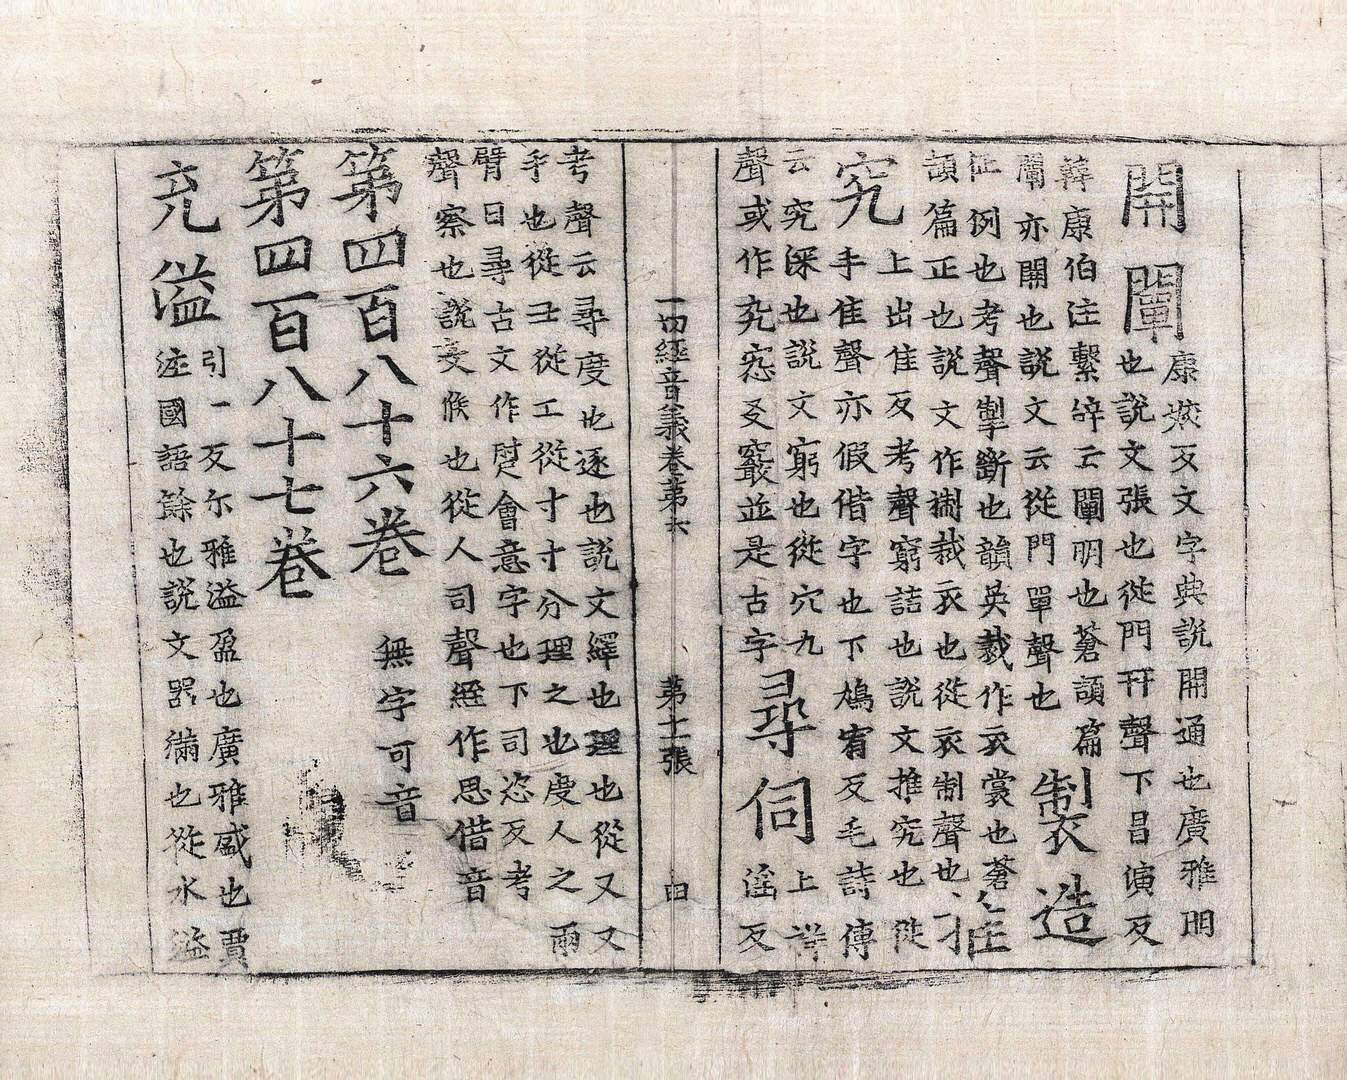 開闡
康㷼反文字典說開通也廣雅明
也說文張也從門幵聲下昌演反
韓康伯注繫辝云闡明也蒼頡篇
闡亦開也說文云從門單聲也
製造
征例也考聲掣斷也韻英裁作衣裳也蒼
頡篇正也說文作製裁衣也從衣制聲也
推究
上出隹反考聲窮詰也說文推究也從
手隹聲亦假借字也下鳩宥反毛詩傳
云究深也說文窮也從穴九
聲或作竅並是古字
尋伺
上詳
淫反
一切經音義卷第六 第十一張 曰
考聲云尋度也逐也說文繹也理也從又又
手也從王從工從寸寸分理之也度人之兩
臂曰尋古文作會意字也下司恣反考
聲察也說文候也從人司聲經作思借音
第四百八十六卷 無字可音
第四百八十七卷
充溢
引一反尔雅溢盈也廣雅盛也賈
注國語餘也說文器滿也從水溢